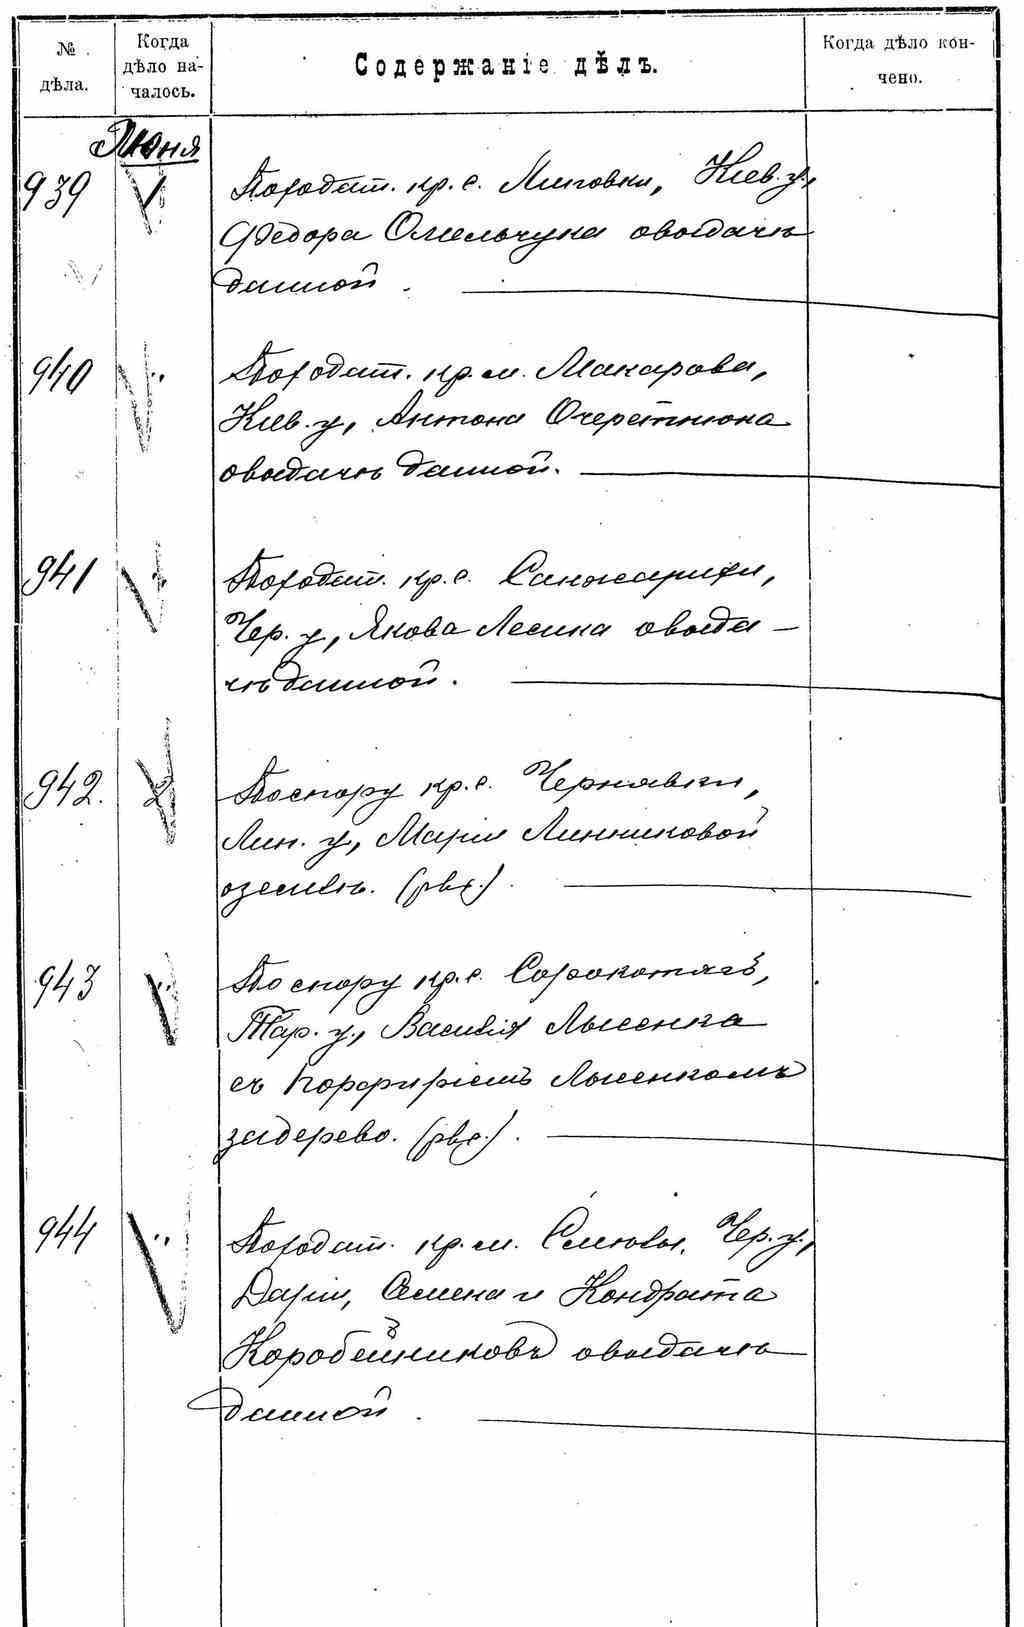 № дѣла.
Когда дѣло на-
чалось.
Содержаніе дѣлъ.
Когда дѣло кон-
чено.
Июня
939 1 По ходат. кр. с. Липовки, Кіев. у.,
Федора Омельчука о выдачѣ
данной.
940 " По ходат. кр. м. Макарова,
Кіев. у., Антона Очеретнюка
о выдачѣ данной.
941 По ходат. кр. с. Санжарихи,
Чер. у., Якова Лесика о выда-
чѣ данной.
942. 2 По спору кр. с. Чернявки,
Лип. у., Маріи Линниковой
о землѣ. (рвс.).
943 " По спору кр. с. Сорокотягъ,
Тар. у., Василія Лысенка
съ Порфиріемъ Лысенкомъ
за дерево. (рвс.).
944 " По ходат. кр. м. Смѣлы, Чер. у.,
Даріи, Семена и Кондрата
Коробейниковъ о выдачѣ
данной.